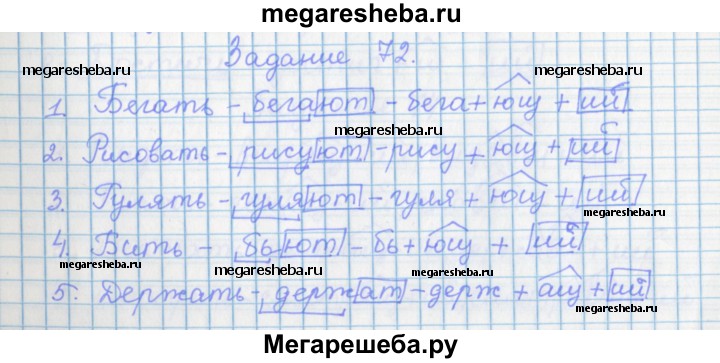 megaresheba.ru
Задание 72.
megaresheba.ru megaresheba.ru
1. Бегать - бегают - бега + ющ + ий
megaresheba.ru
2. Рисовать - рисуют - рису + ющ + ий
megaresheba.ru megaresheba.ru
3. Гулять - гуляют - гуля + ющ + ий
megaresheba.ru
4. Бить - бьют - бь + ющ + ий
megaresheba.ru megaresheba.ru
5. Держать - держат - держ + ащ + ий
megaresheba.ru megaresheba.ru
Мегарешеба.ру